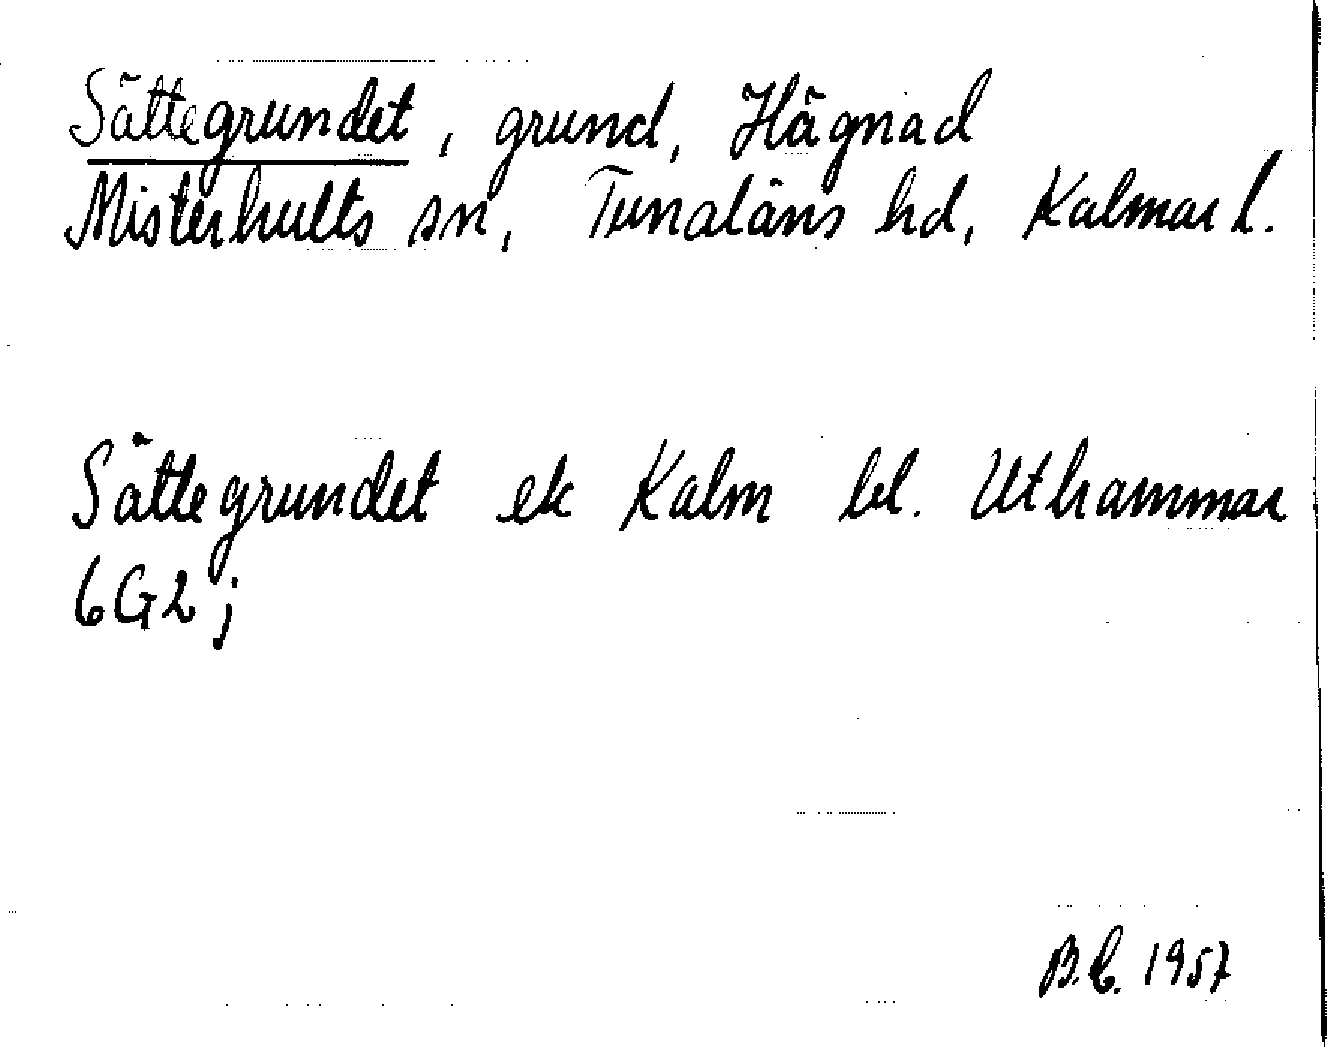 Sättegrundet, grund, Hägnad
Misterhults sn, Tunaläns hd, Kalmar l.
Sättegrundet ek Kalm bl. Uthammar
6G2;
B.C. 1957